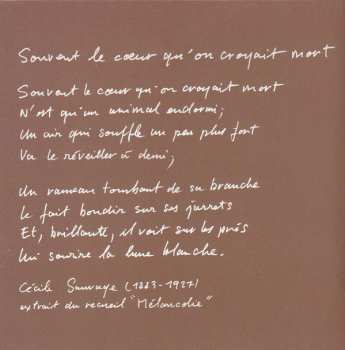 Souvent le cœur qu'on croyait mort
Souvent le cœur qu'on croyait mort
N'est qu'un animal endormi;
Un air qui souffle un peu plus fort
Va le réveiller à demi;
Un rameau tombant de sa branche
Le fait bondir sur ses jarrets
Et, brillante, il voit sur les prés
Lui sourire la lune blanche.
Cécile Sauvage (1883-1927)
extrait du recueil "Mélancolie"